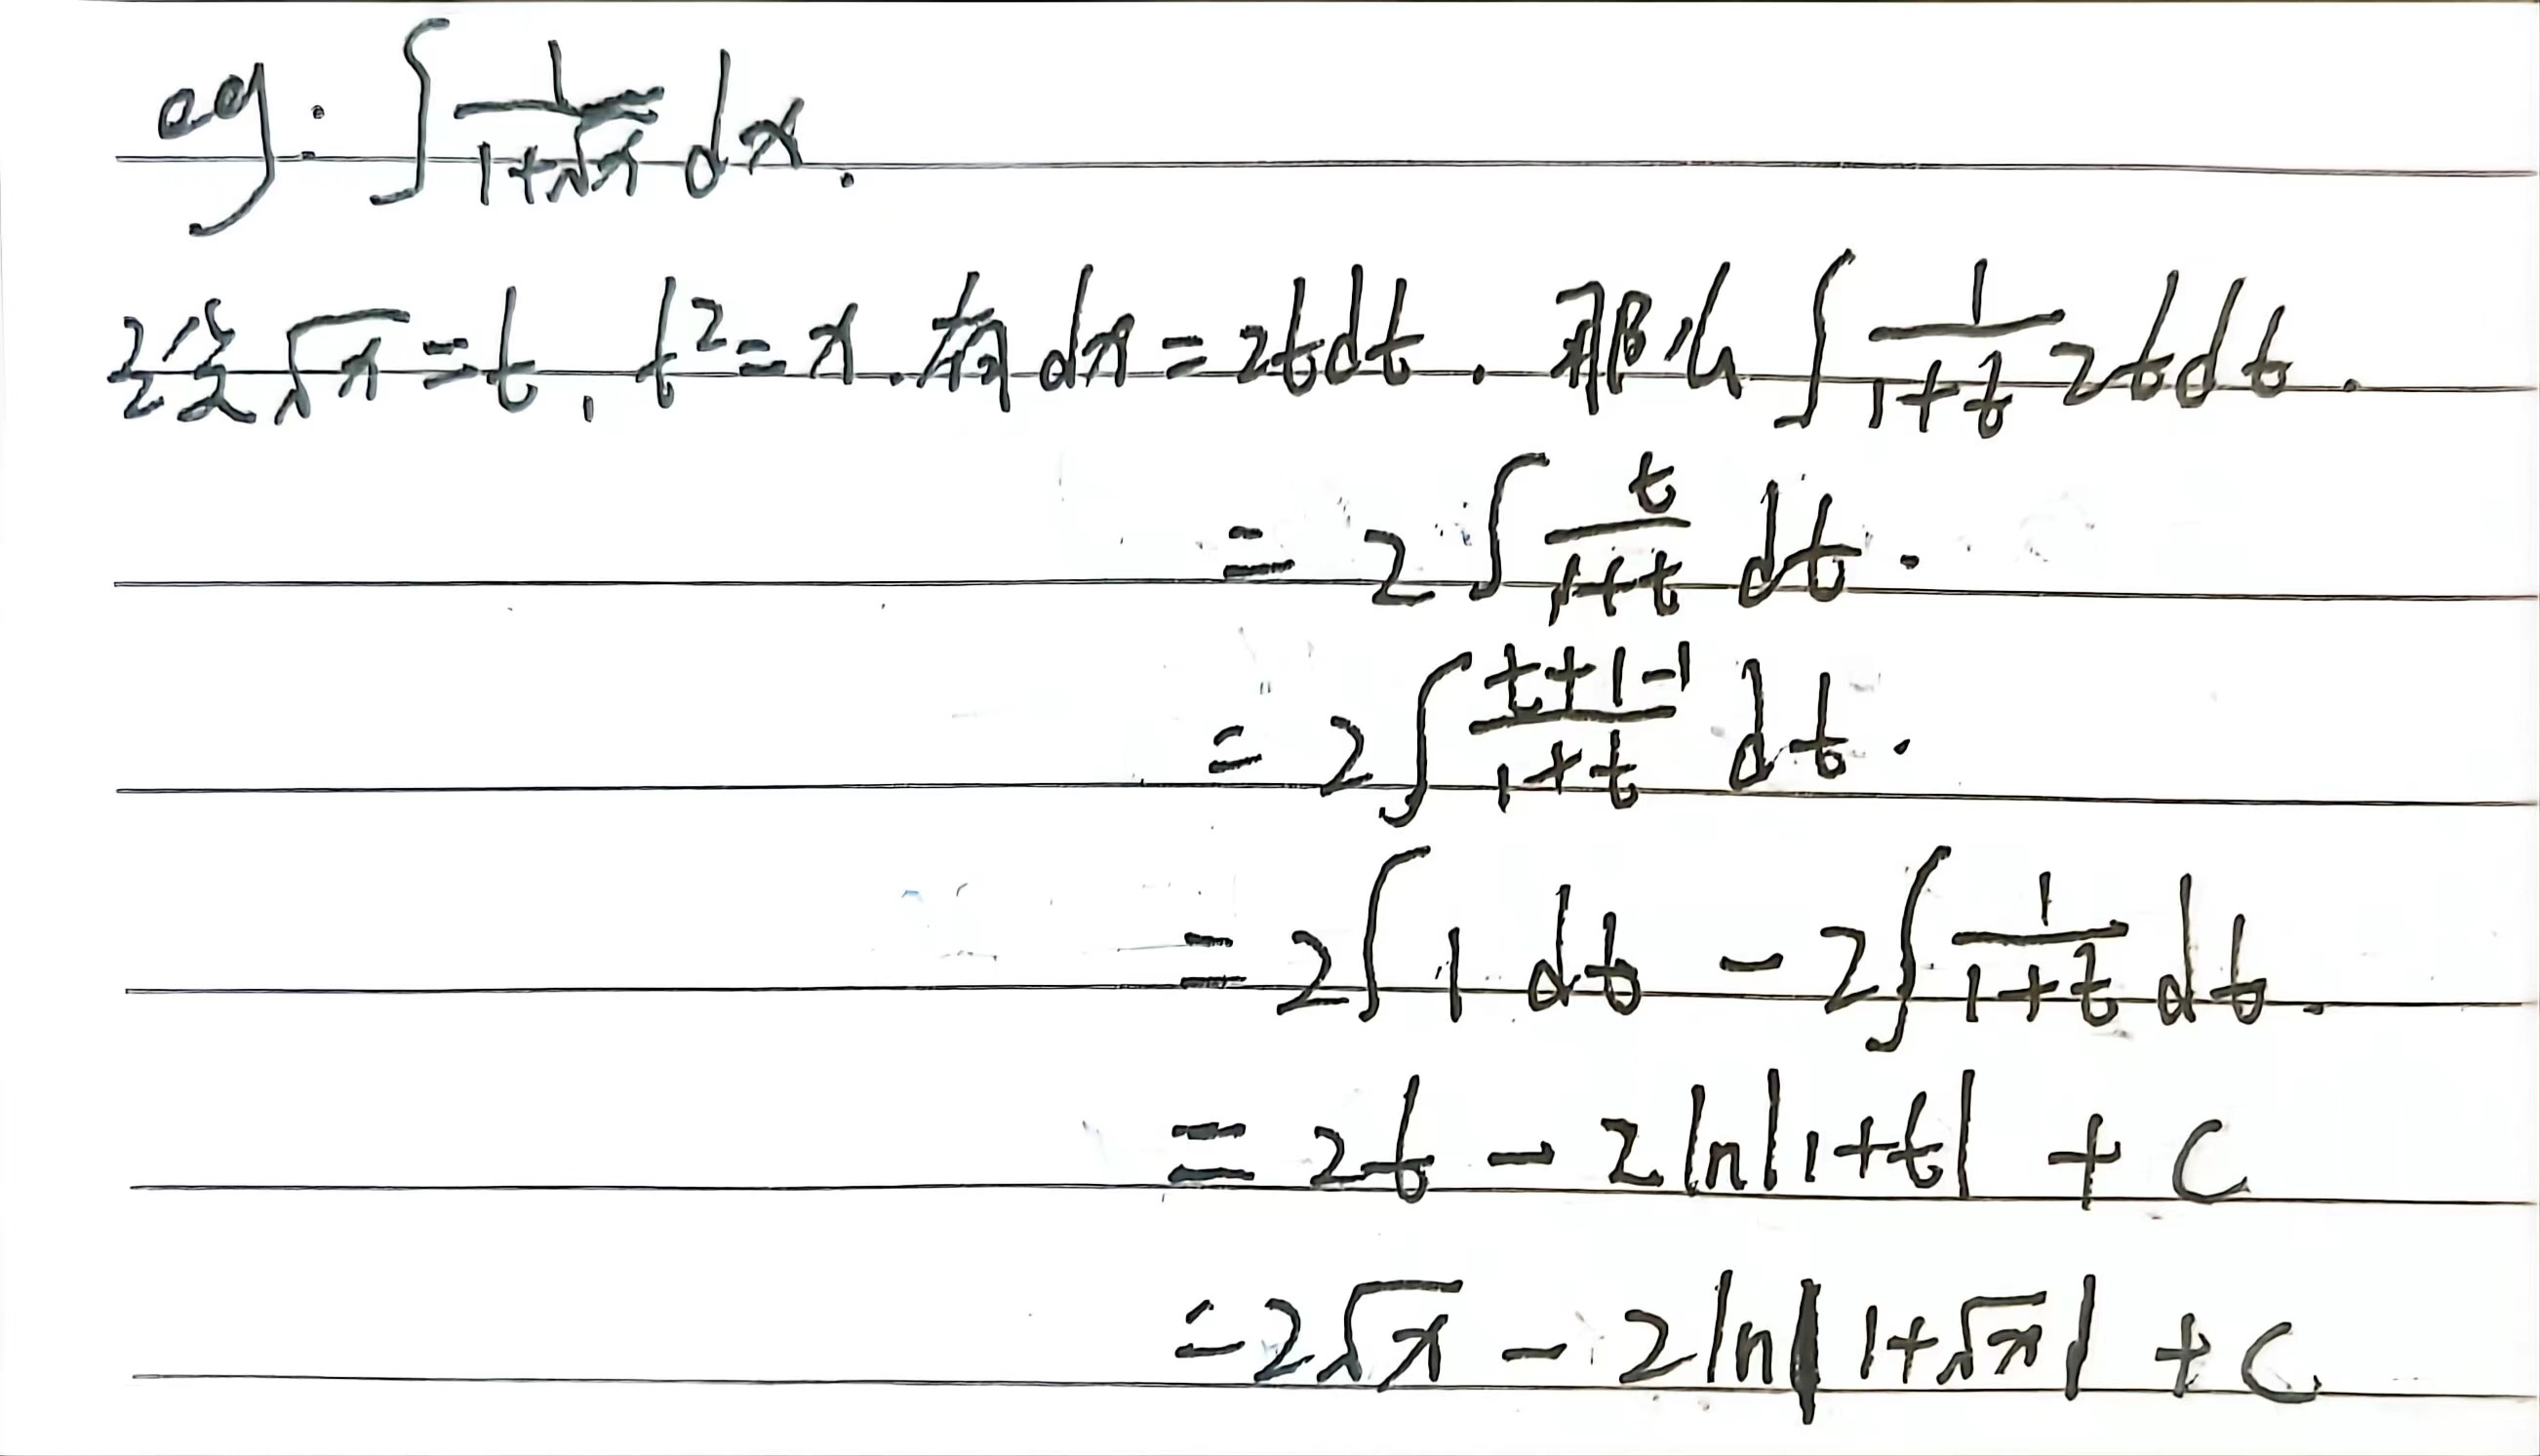 eg: ∫ 1/(1+√x) dx.
设 √x = t, t² = x. 有 dx = 2tdt. 那么 ∫ 1/(1+t) 2tdt.
= 2 ∫ t/(1+t) dt.
= 2 ∫ (t+1-1)/(1+t) dt.
= 2 ∫ 1 dt - 2 ∫ 1/(1+t) dt.
= 2t - 2 ln|1+t| + C
= 2√x - 2 ln|1+√x| + C